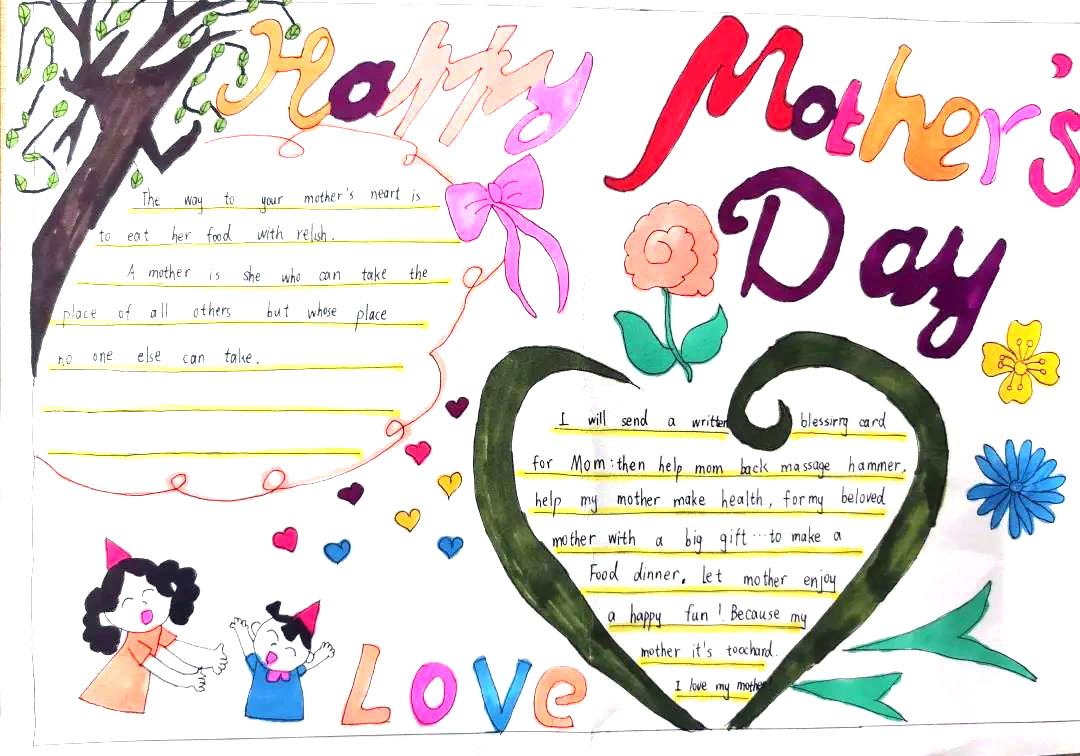 Happy Mother's
Day
The way to your mother's neart is
to eat her food with relish.
A mother is she who can take the
place of all others but whose place
no one else can take.
I will send a written blessirng card
for Mom:then help mom back massage hammer,
help my mother make health, for my beloved
mother with a big gift...to make a
Food dinner, let mother enjoy
a happy fun! Because my
mother it's toochard.
I love my mother
LOVe